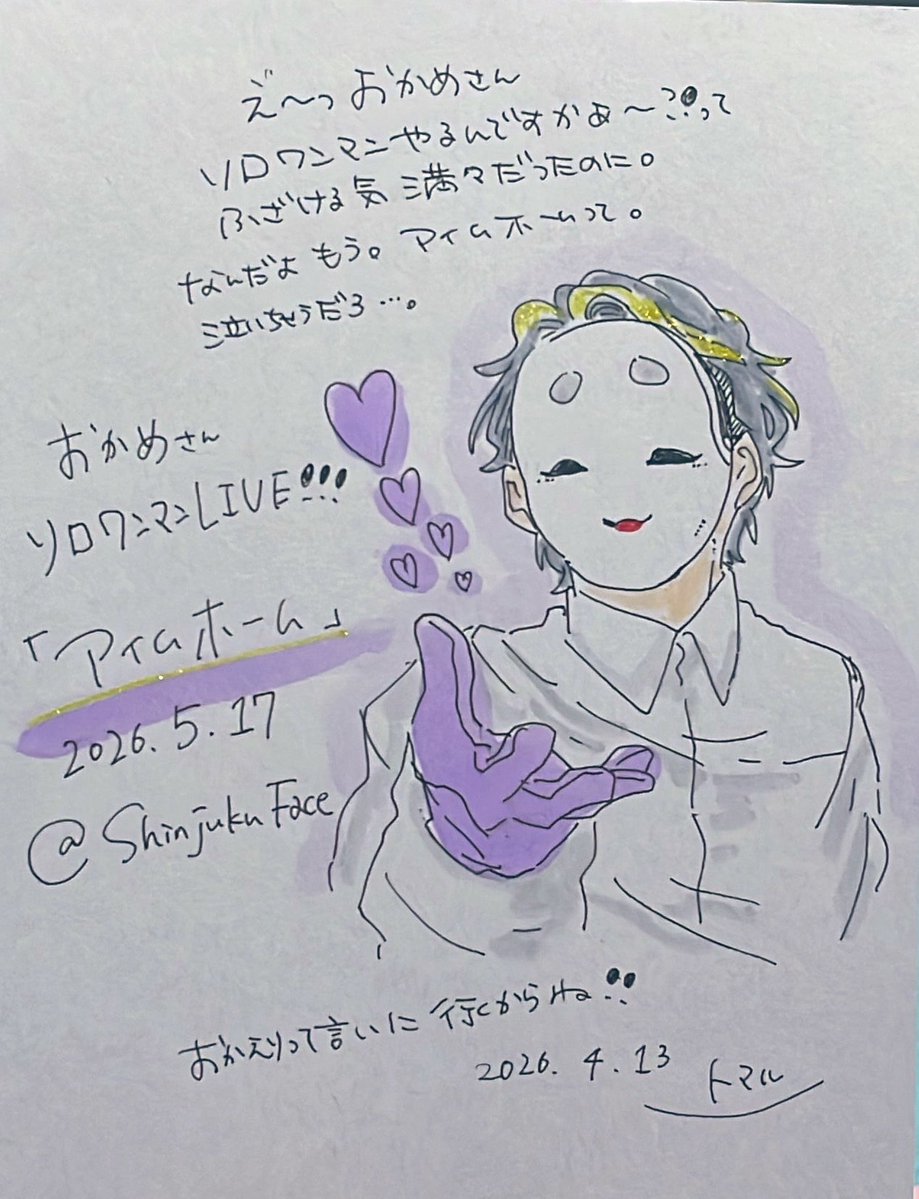 え〜っ おかめさん
ソロワンマンやるんですかぁ〜?!って
ふざける気満々だったのに。
なんだよもう。アイムホームって。
泣いちゃうだろ…。
おかめさん
ソロワンマンLIVE!!!
「アイムホーム」
2026.5.17
@Shinjuku Face
おかえりって言いに行くからね!!
2026.4.13 トマル